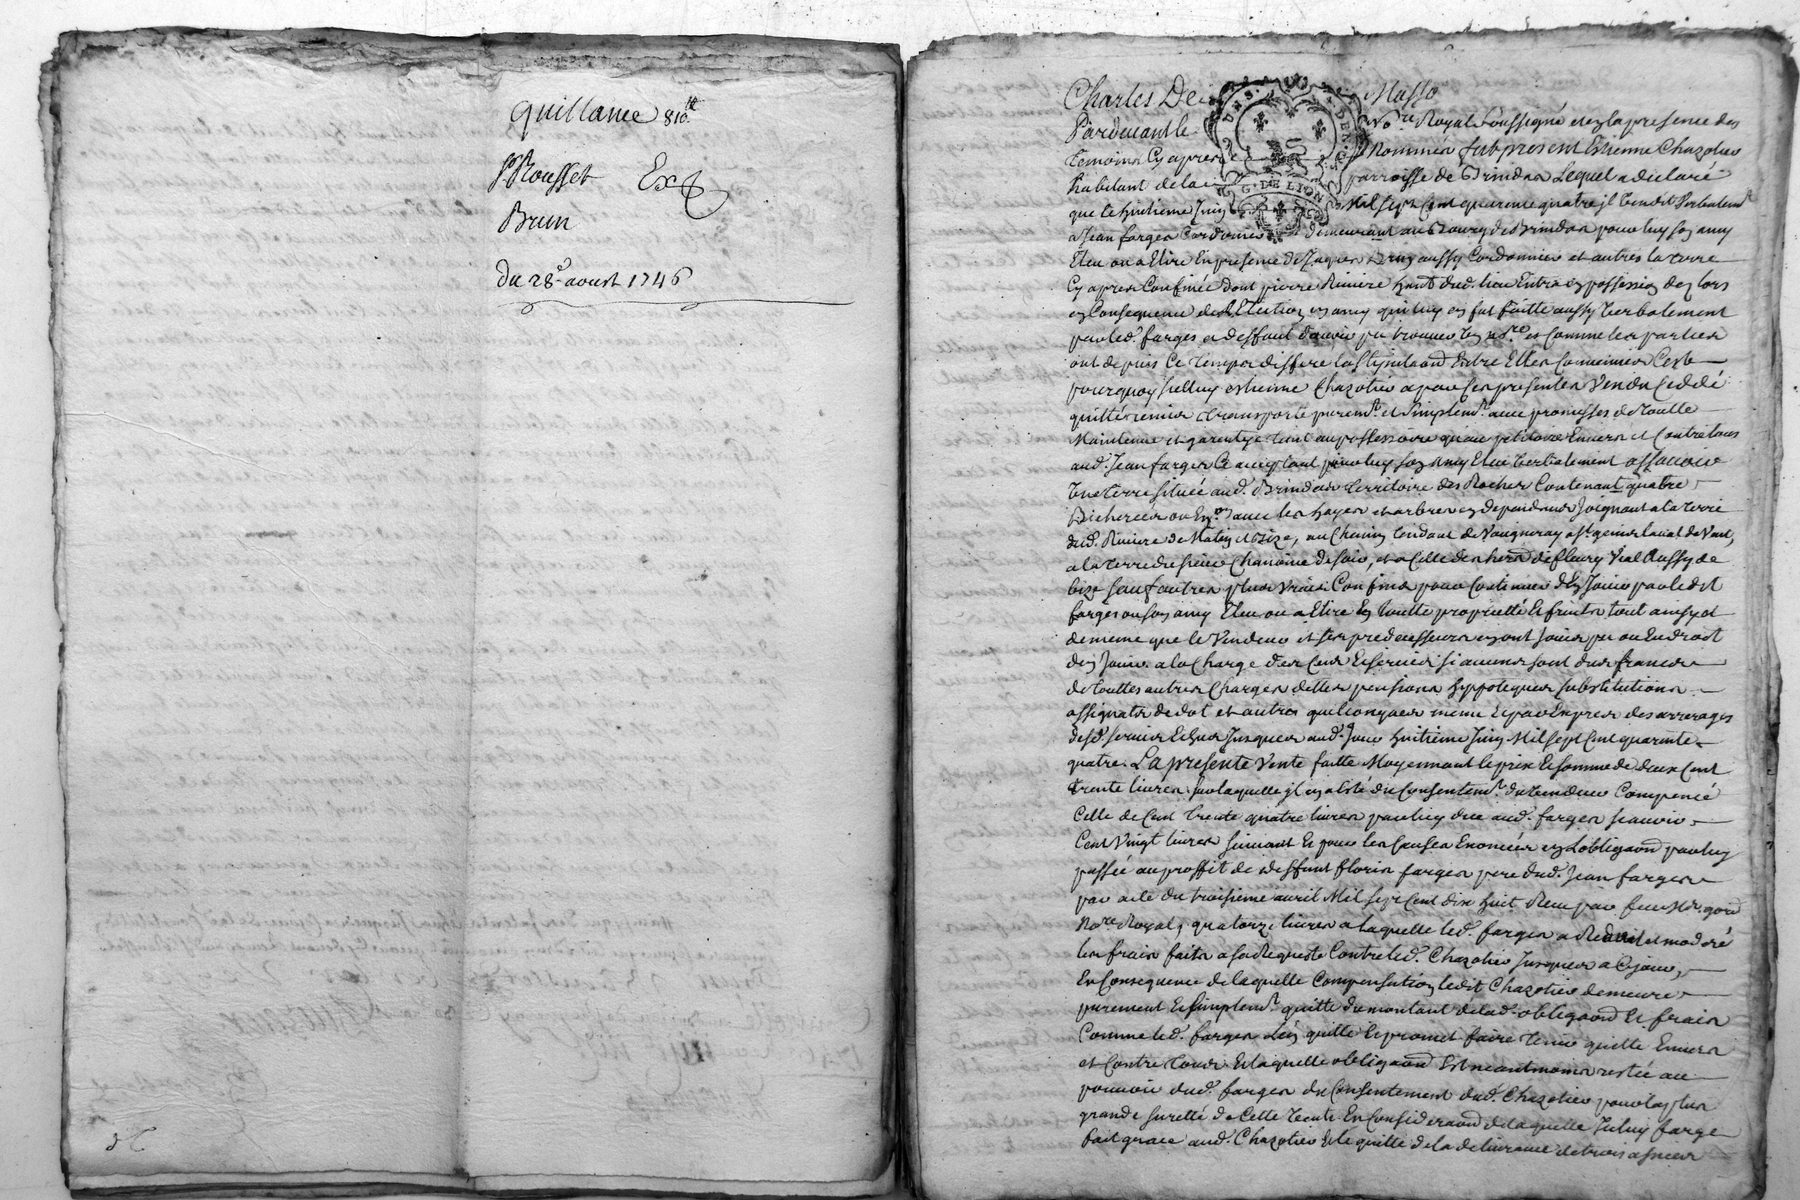 Quittance 816
Rousset Ex
Brun
Du 28e aoust 1746
Charles De Masso
Pardevant le No.re Royal soussigné et en la presence des
temoins cy apres Nommés fut present Estienne Chazotier
habitant de la parroisse de Brindas Lequel a declaré
que le huitieme Juin Mil sept Cent quarente quatre il vendit verbalemt
a Jean farges Cordonnier demeurant au Bourg de Brindas pour luy son amy
Eleu ou a Elire En presence de Jaques aussy Cordonnier et autres la terre
Cy apres Confinée dont pierre Riviere dud. lieu Entra en possession des lors
en Consequence de l'Election en amy qui luy en fut faitte aussy verbalement
par led. farges a deffaut d'avoir pu trouver No.re et Comme les parties
ont depuis Ce temps differé la Entre Elles Convenues C'est
pourquoy Icelluy Estienne Chazotier a par ses presentes Vendu Ceddé
quitté remis et transporté purem.t et simplem.t avec promesses de Toutte
Maintenue et garentye tant au possessoire qu'au petitoire Envers et Contre tous
aud. Jean farges Ce acceptant pour luy son amy Eleu verbalement assavoir
Une terre située aud. Brindas territoire des Rocher Contenant quatre
Bicherées ou En.on avec les hayes et arbres en dependants Joignant a la terre
dud. Riviere de Matin et bize, au Chemin tendant de Vaugneray a St genis Laval de Vent,
a la terre de sieur Chanoine de soir, et a Celle des de fleury Vial Aussy de
bize sauf autres plus vrais Confins pour Continuer d'En Jouir par ledit
farges ou son amy Eleu ou a Elire En toutte proprieté et fruits tout ainsy et
de meme que le Vendeur et ses predecesseurs en ont Jouis pu ou En droit
d'en Jouir a la Charge des Cens et servis si aucuns sont dus francs
de touttes autres Charges dettes pensions hyppoteques substitutions
assignats de dot et autres quelconques meme Et par Expres des arrerages
desd. servis Echus Jusques aud. Jour huitieme Juin Mil sept Cent quarente
quatre. La presente Vente faitte Moyennant le prix et somme de deux Cent
trente livres sur laquelle il en a Eté du Consentem.t du Vendeur Compensé
Celle de Cent trente quatre livres par luy due aud. farges scavoir
Cent Vingt livres suivant et pour les Causes Enoncées en l'obligaon par luy
passée au proffit de deffunt florin farges pere dud. Jean farges
par acte du troisieme avril Mil sept Cent dix huit Receu par feu
No.re Royal, quatorze livres a laquelle led. farges a et moderé
les frais faits a sa Requeste Contre led. Chazotier Jusques a Ce Jour,
En Consequence de laquelle Compensation ledit Chazotier demeure
purement et simplem.t quitte du montant de lad. obligaon et frais
Comme led. farges L'en quitte et promet faire tenir quitte Envers
et Contre Tous Et laquelle obligaon Est neantmoins restée au
pouvoir dud. farges du Consentement dud. Chazotier pour la plus
grande sureté de Cette Vente En Consideraon de laquelle Icelluy farges
fait grace aud. Chazotier et le quitte de la delivrance de trois asnées